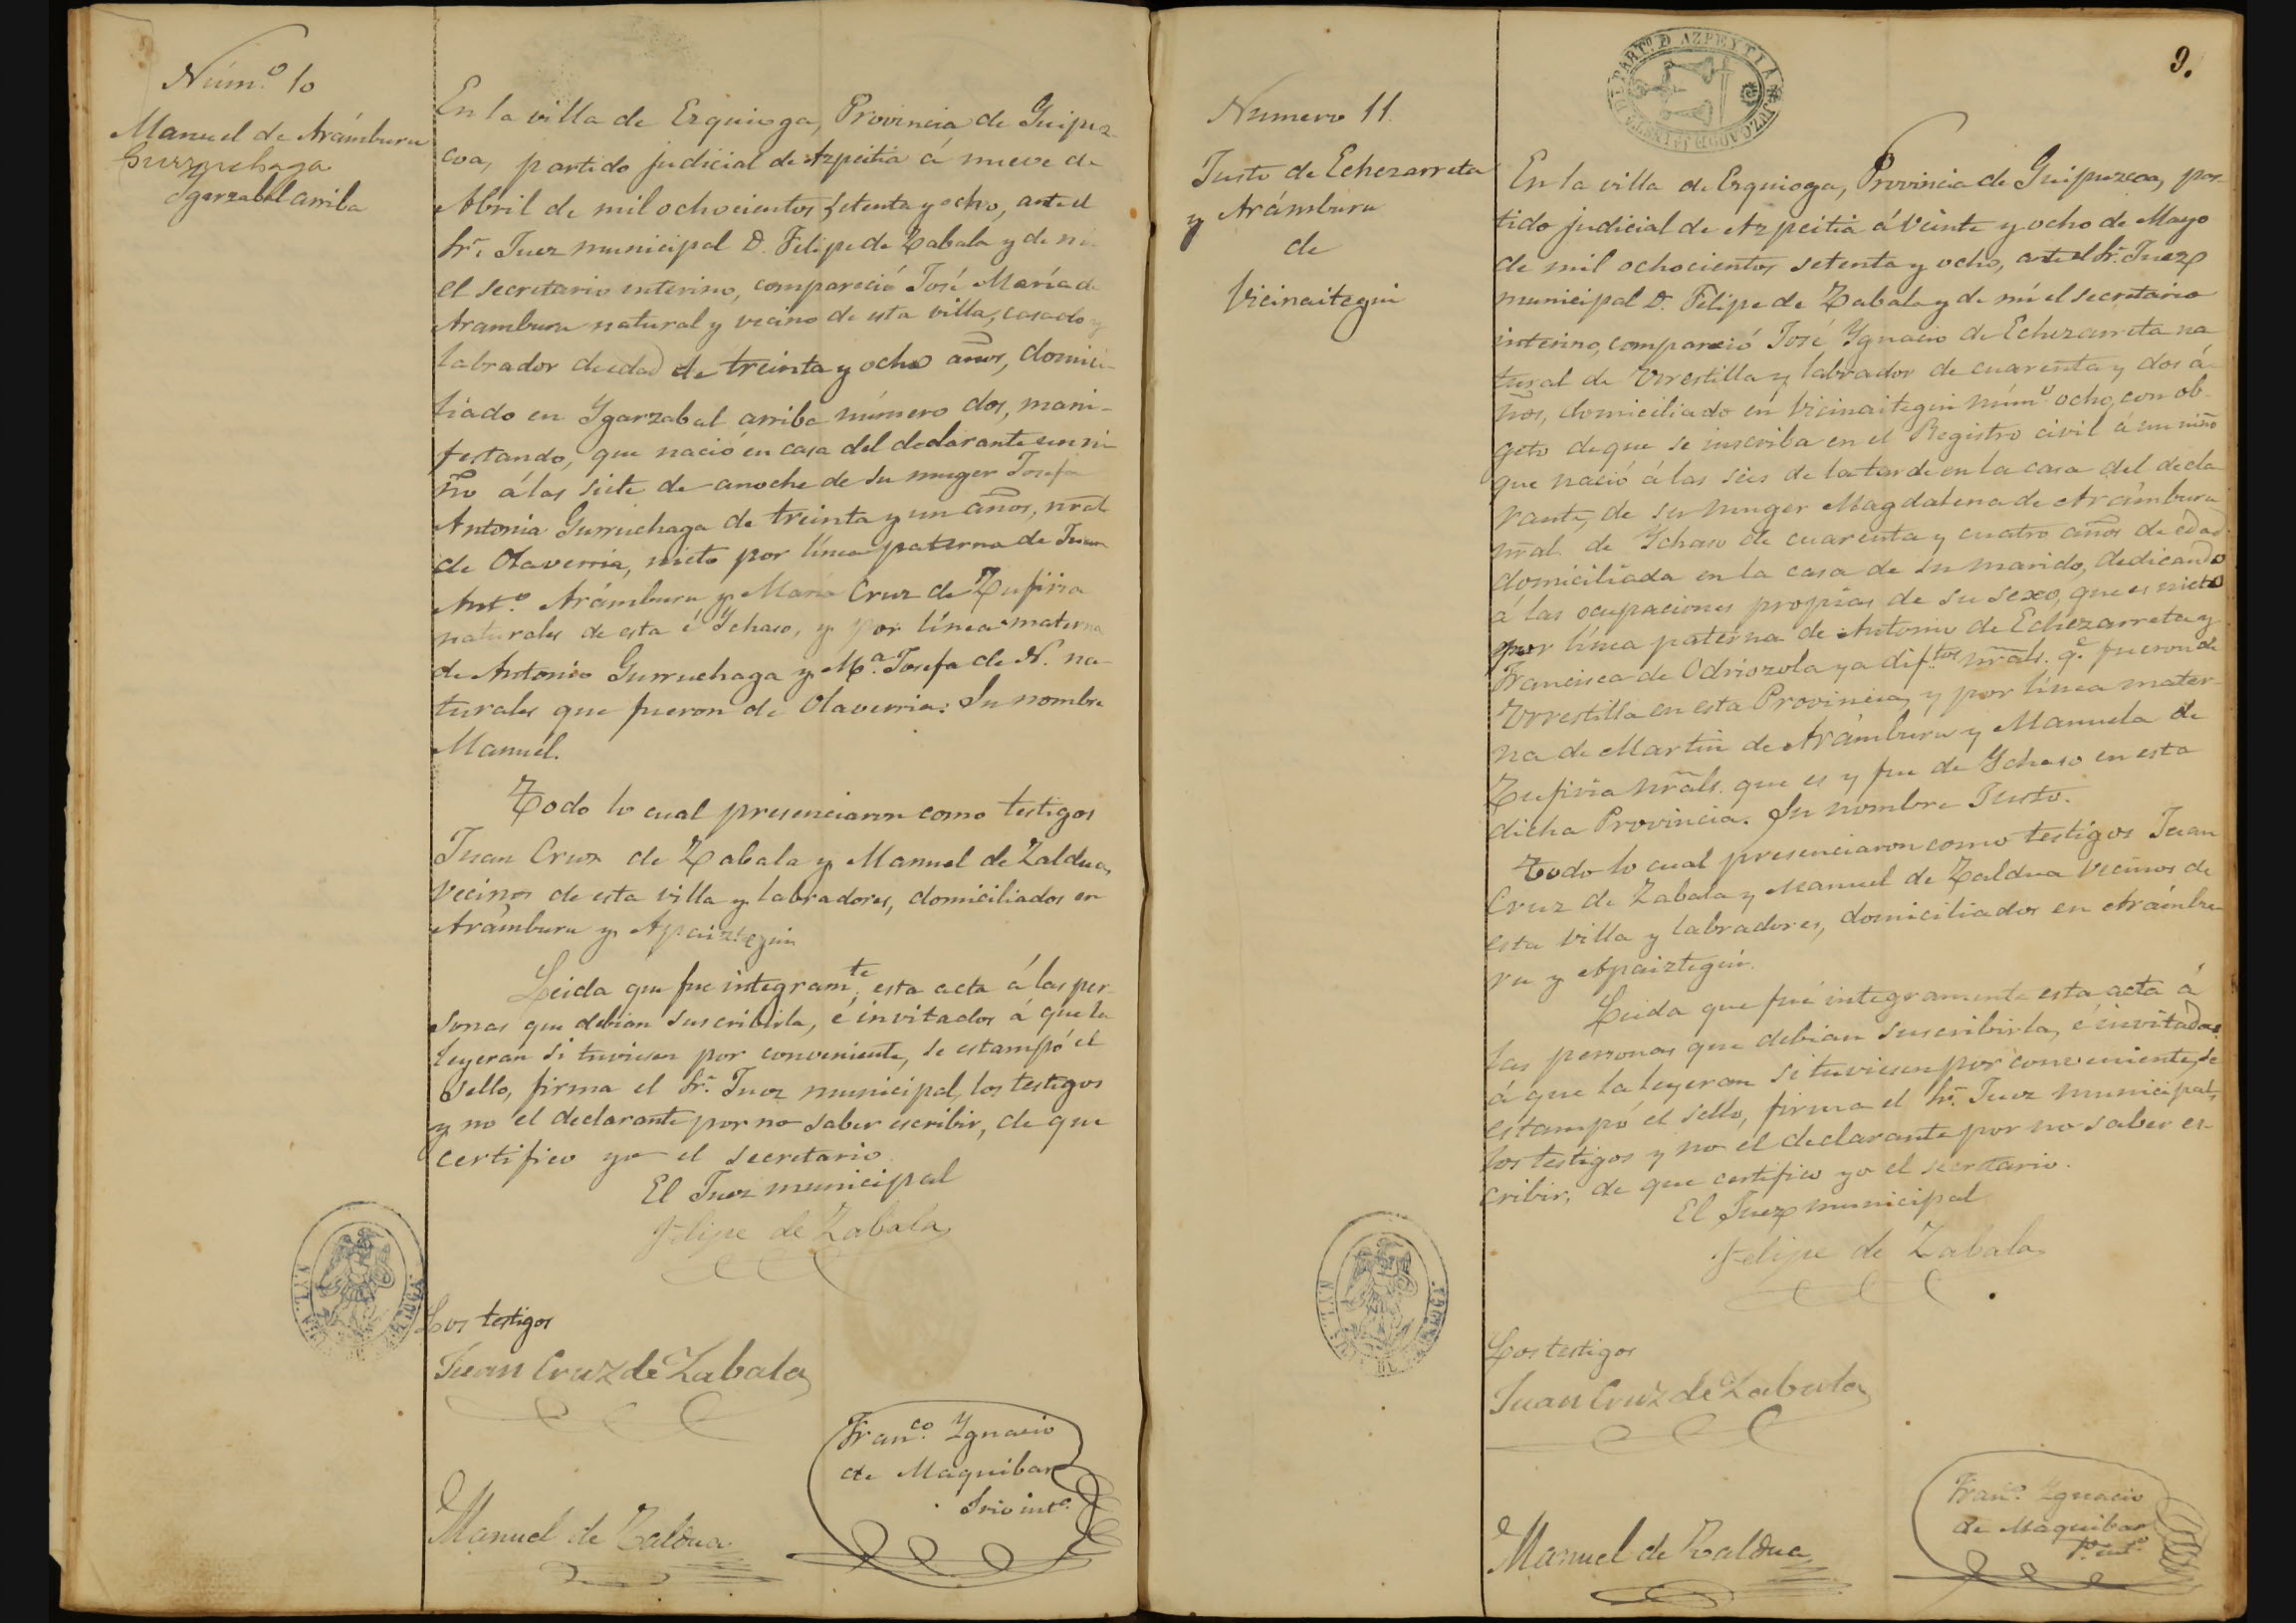 Núm.º 10
Manuel de Arámburu
Gurruchaga
Ygarzabal arriba
En la villa de Ezquioga, Provincia de Guipuz-
coa, partido judicial de Azpeitia á nueve de
Abril de mil ochocientos setenta y ocho, ante el
Sr. Juez municipal D. Felipe de Zabala y de mi
el secretario interino, compareció José María de
Aramburu natural y vecino de esta villa, casado y
labrador de edad de treinta y ocho años, domici-
liado en Ygarzabal arriba número dos, mani-
festando, que nació en casa del declarante un ni-
ño á las siete de anoche de su muger Josefa
Antonia Gurruchaga de treinta y un años, nral
de Olaverria, nieto por línea paterna de Juan
Ant.º Arámburu y María Cruz de Zufiria
naturales de esta é Ychaso, y por línea materna
de Antonio Gurruchaga y M.ª Josefa de N. na-
turales que fueron de Olaverria: Su nombre
Manuel.
Todo lo cual presenciaron como testigos
Juan Cruz de Zabala y Manuel de Zaldua,
vecinos de esta villa y labradores, domiciliados en
Arámburu y Apaiztegui
Leida que fue integramte. esta acta á las per-
sonas que debian suscribirla, é invitados á que la
leyeran si tuviesen por conveniente, se estampó el
sello, firma el Sr. Juez municipal, los testigos
y no el declarante por no saber escribir, de que
certifico yo el secretario.
El Juez municipal
Felipe de Zabala
Los testigos
Juan Cruz de Zabala
Franco. Ygnacio
de Maquibar
Srio intº.
Manuel de Zaldua
9.
PARTº. D AZPEYTIA
JUZGADO DE
Numero 11.
Justo de Echezarreta
y Arámburu
de
Vicinaitegui
En la villa de Ezquioga, Provincia de Guipuzcoa, par-
tido judicial de Azpeitia á veinte y ocho de Mayo
de mil ochocientos setenta y ocho, ante el Sr. Juez
municipal D. Felipe de Zabala y de mí el secretario
interino, compareció José Ygnacio de Echezarreta na
tural de Urrestilla y labrador de cuarenta y dos á-
ños, domiciliado en Vicinaitegui númº. ocho, con ob-
geto de que se inscriba en el Registro civil á un niño
que nació á las seis de la tarde en la casa del decla
rante, de su muger Magdalena de Arámburu
nral. de Ychaso de cuarenta y cuatro años de edad
domiciliada en la casa de su marido, dedicando
á las ocupaciones propias de su sexo, que es nieto
por línea paterna de Antonio de Echezarreta y
Francisca de Odriozola ya diftos. nrals. q.e fueron de
Urrestilla en esta Provincia, y por línea mater-
na de Martin de Arámburu y Manuela de
Zufiria nrals. que es y fue de Ychaso en esta
dicha Provincia. Su nombre Justo.
Todo lo cual presenciaron como testigos Juan
Cruz de Zabala y Manuel de Zaldua vecinos de
esta villa y labradores, domiciliados en Arámbu-
ru y Apaiztegui.
Leida que fué integramente esta acta á
las personas que debian suscribirla, é invitadas
á que la leyeran si tuviesen por conveniente, se
estampó el sello, firma el Sr. Juez municipal,
los testigos y no el declarante por no saber es-
cribir, de que certifico yo el secretario.
El Juez municipal
Felipe de Zabala
Los testigos
Juan Cruz de Zabala
Franco. Ygnacio
de Maquibar
Manuel de Zaldua